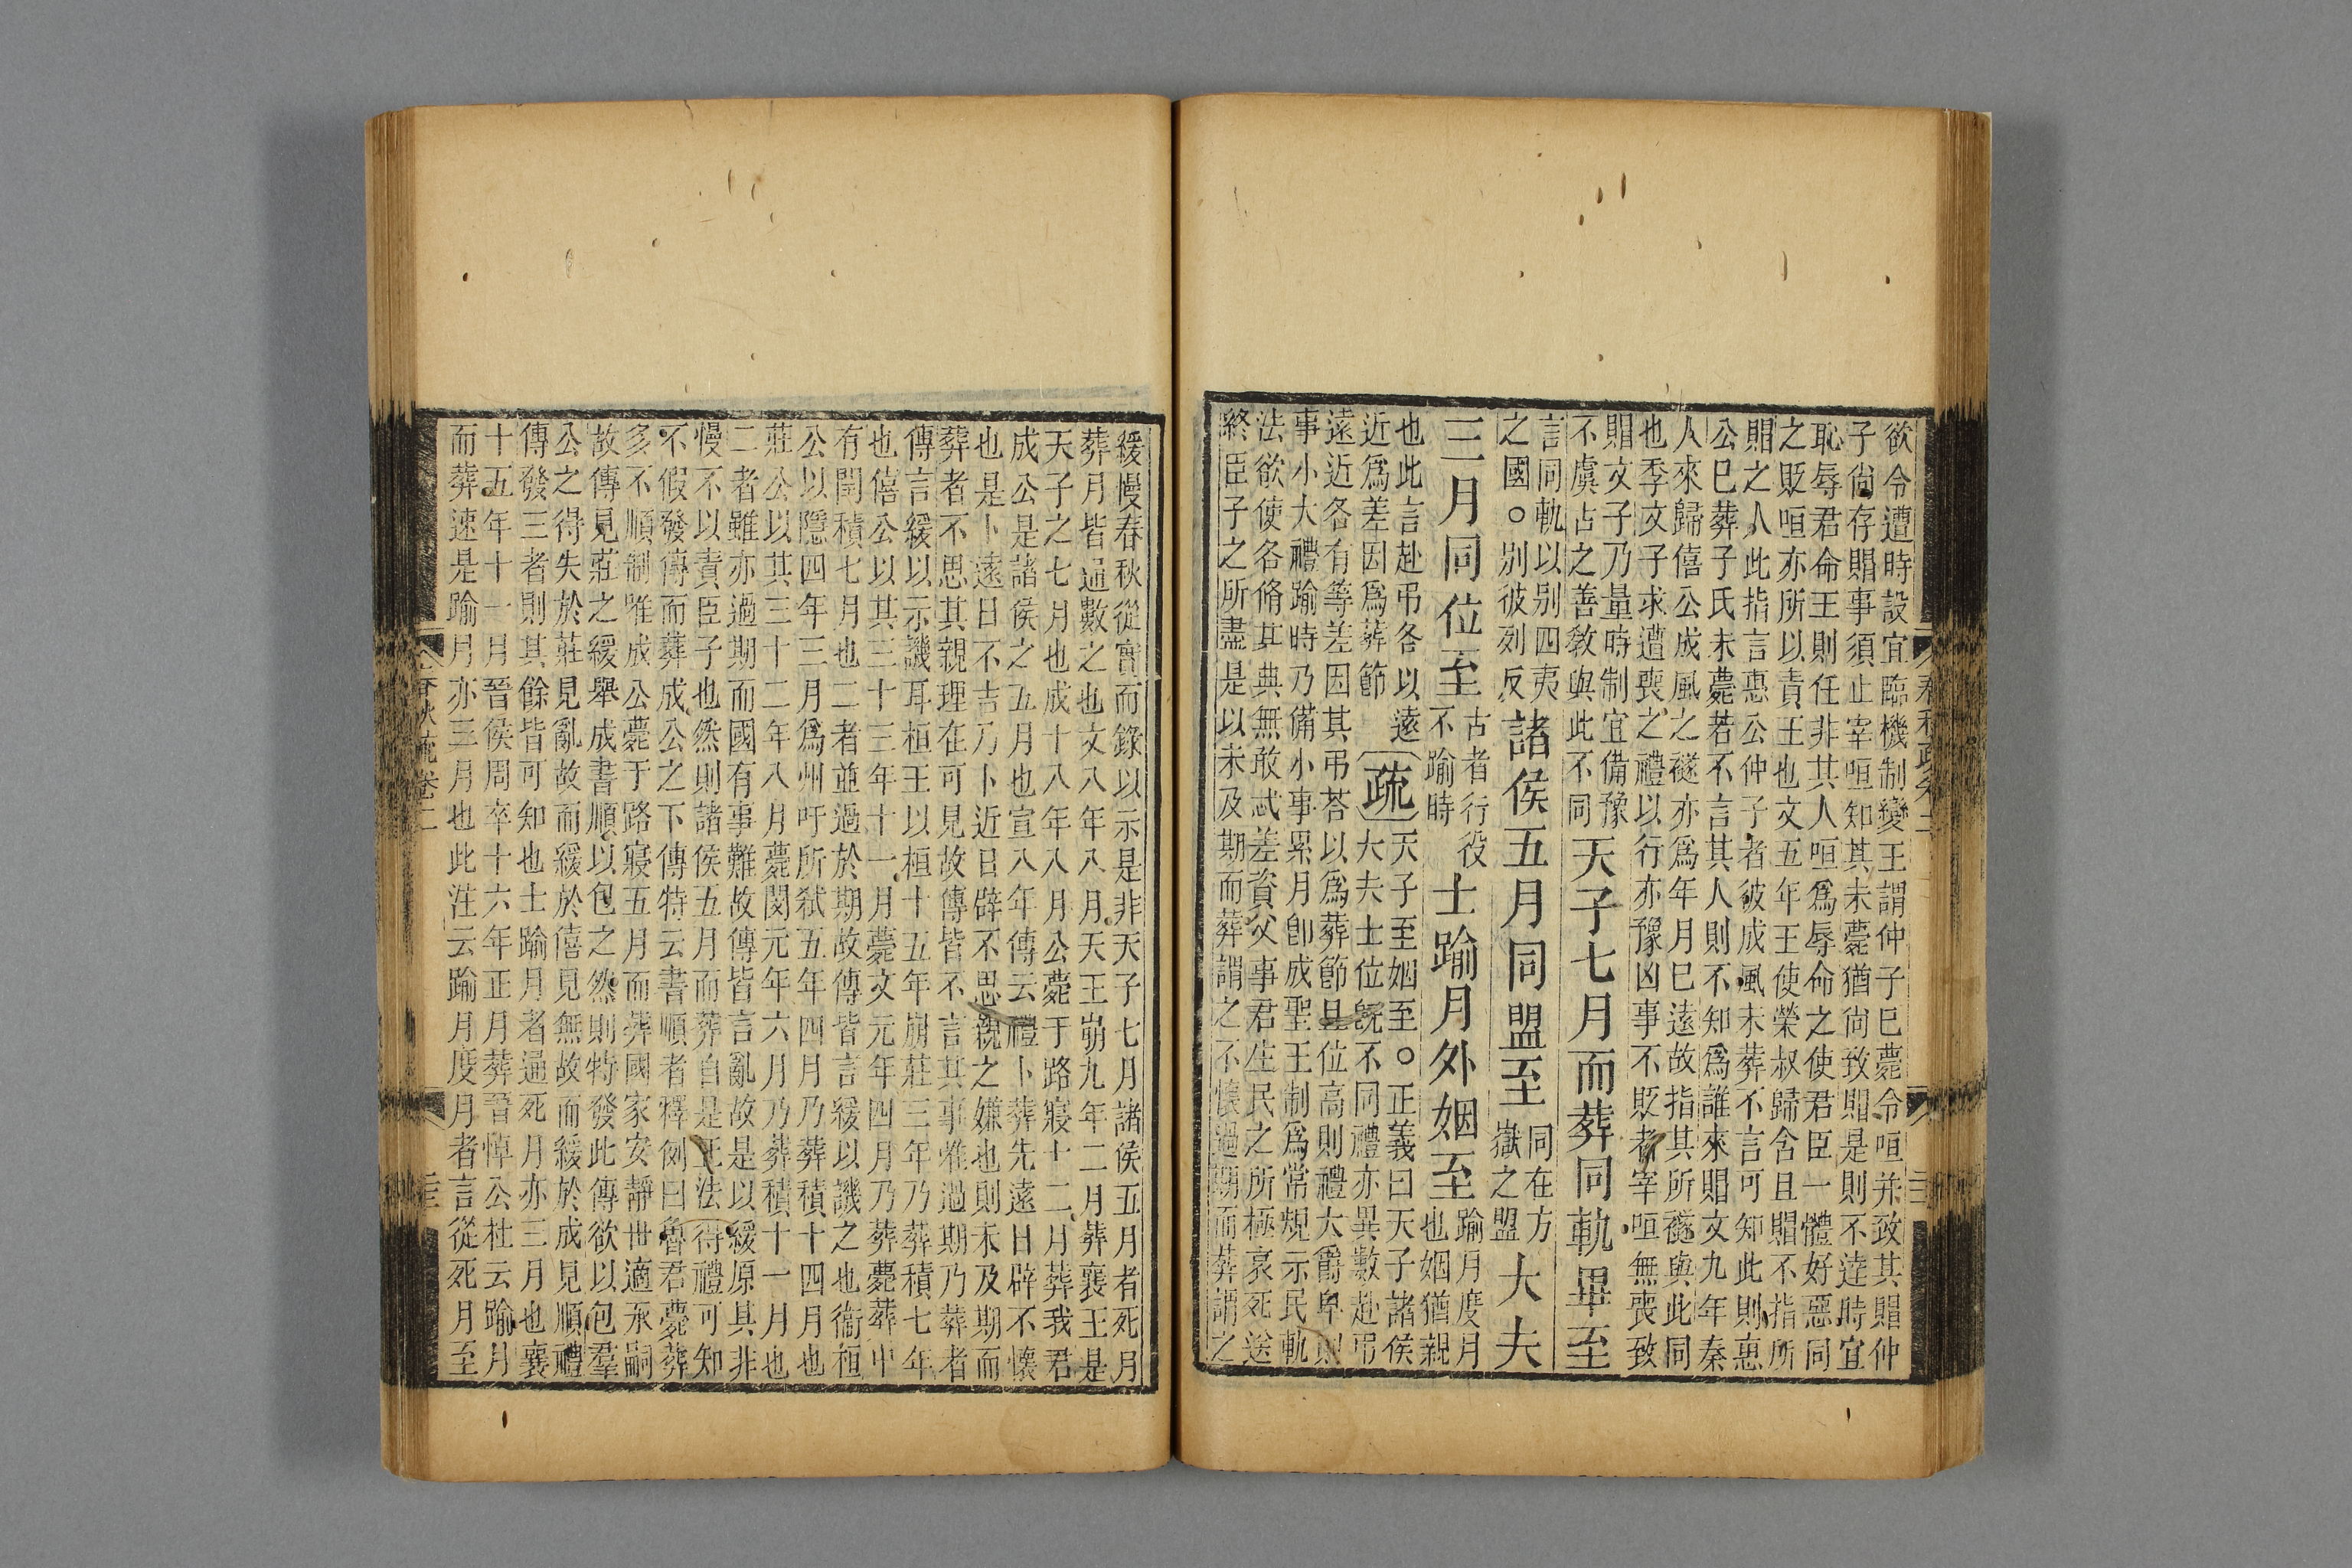 欲令遭時設宜臨機制變王謂仲子巳薨令咺并致其賵仲
子尙存賵事須止宰咺知其未薨猶尙致賵是則不達時宜
恥辱君命王則任非其人咺爲辱命之使君臣一體好惡同
之貶咺亦所以責王也文五年王使榮叔歸含且賵不指所
賵之人此指言惠公仲子者彼成風未葬不言可知此則惠
公巳葬子氏未薨若不言其人則不知爲誰來賵文九年秦
人來歸僖公成風之襚亦爲年月巳遠故指其所襚與此同
也季文子求遭喪之禮以行亦豫凶事不貶者宰咺無喪致
賵文子乃量時制宜備豫
不虞古之善敎與此不同
天子七月而葬同軌畢至
言同軌以别四夷
之國○别彼列反
諸侯五月同盟至
同在方
嶽之盟
大夫
三月同位至
古者行役
不踰時
士踰月外姻至
踰月度月
也姻猶親
也此言赴弔各以遠
近爲差因爲葬節
疏
天子至姻至○正義曰天子諸侯
大夫士位旣不同禮亦異數赴弔
遠近各有等差因其弔荅以爲葬節且位高則禮大爵卑則
事小大禮踰時乃備小事累月卽成聖王制爲常規示民軌
法欲使各脩其典無敢忒差資父事君生民之所極哀死送
終臣子之所盡是以未及期而葬謂之不懷過期而葬謂之
緩慢春秋從實而錄以示是非天子七月諸侯五月者死月
葬月皆通數之也文八年八月天王崩九年二月葬襄王是
天子之七月也成十八年八月公薨于路寢十二月葬我君
成公是諸侯之五月也宣八年傳云禮卜葬先遠日辟不懷
也是卜遠日不吉乃卜近日辟不思親之嫌也則未及期而
葬者不思其親理在可見故傳皆不言其事惟過期乃葬者
傳言緩以示譏耳桓王以桓十五年崩莊三年乃葬積七年
也僖公以其三十三年十一月薨文元年四月乃葬薨葬中
有閏積七月也二者並過於期故傳皆言緩以譏之也衞桓
公以隱四年三月爲州吁所弑五年四月乃葬積十四月也
莊公以其三十二年八月薨閔元年六月乃葬積十一月也
二者雖亦過期而國有事難故傳皆言亂故是以緩原其非
慢不以責臣子也然則諸侯五月而葬自是正法得禮可知
不假發傳而葬成公之下傳特云書順者釋例曰魯君薨葬
多不順制唯成公薨于路寢五月而葬國家安靜世適承嗣
故傳見莊之緩舉成書順以包之然則特發此傳欲以包羣
公之得失於莊見亂故而緩於僖見無故而緩於成見順禮
傳發三者則其餘皆可知也士踰月者通死月亦三月也襄
十五年十一月晉侯周卒十六年正月葬晉悼公杜云踰月
而葬速是踰月亦三月也此注云踰月度月者言從死月至